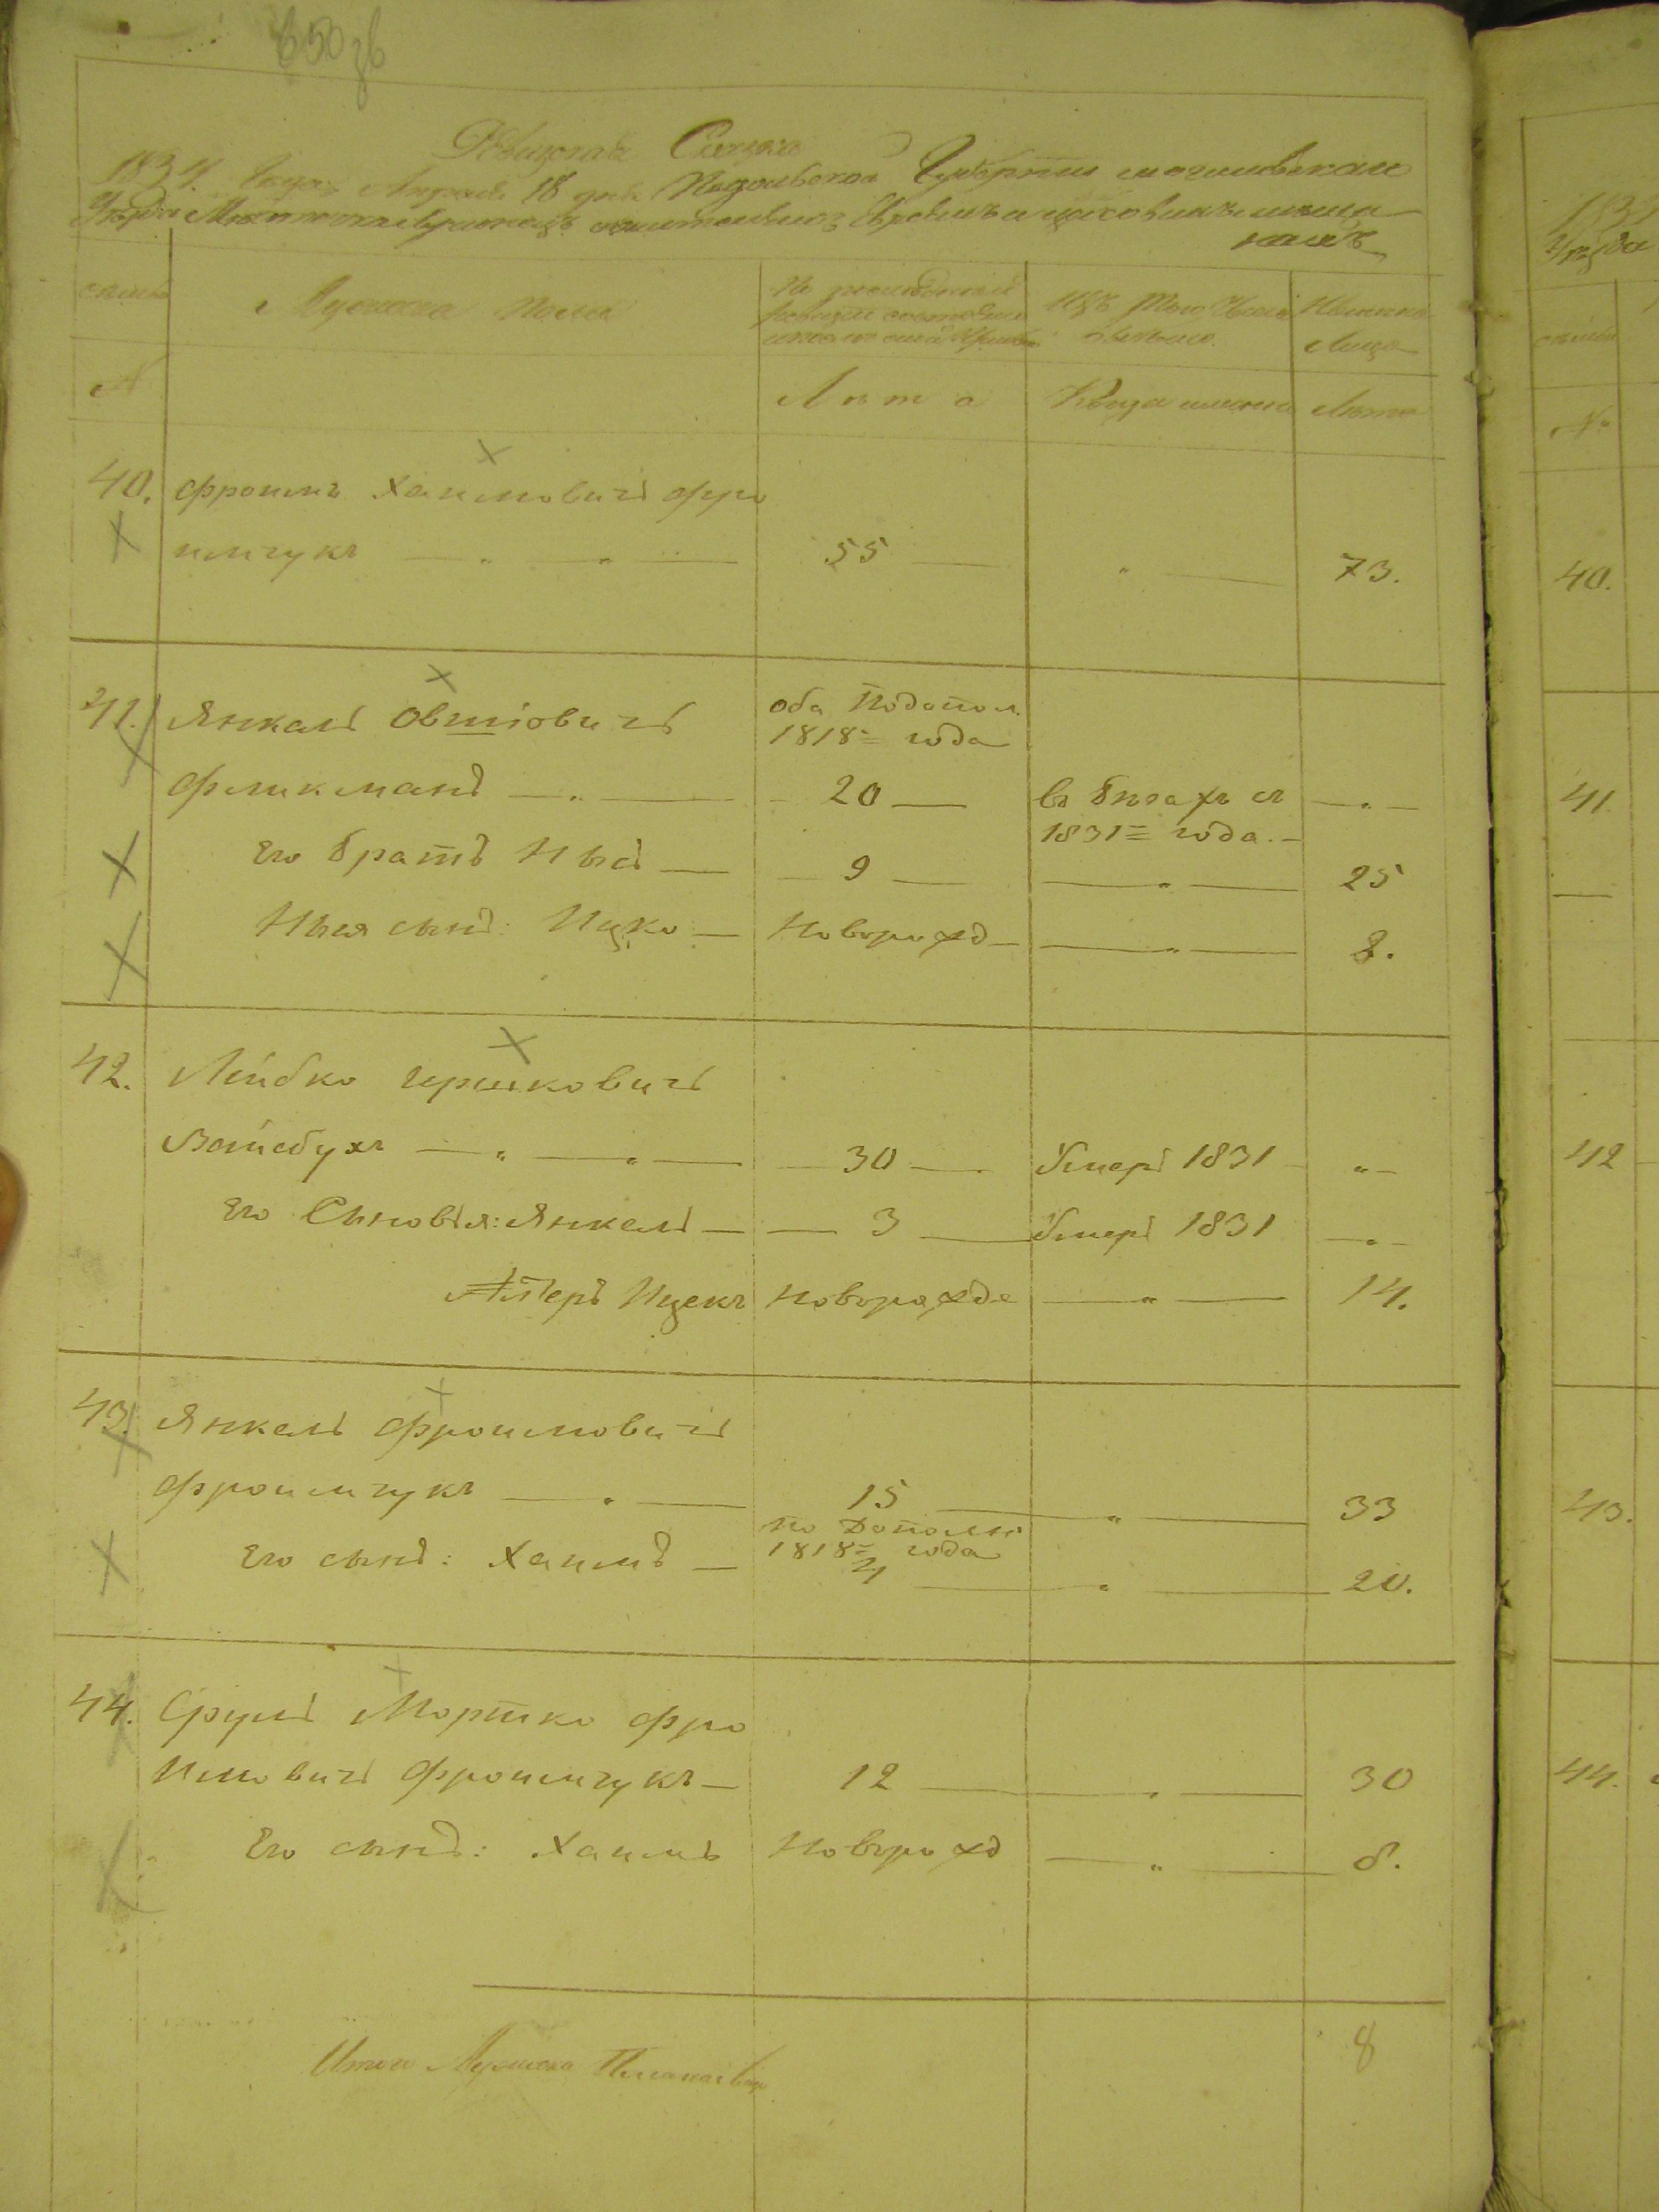 850 зв
Ревизская Сказка
1834 Года Апреля 18 дня Подольской Губернии могилевскаго
Уезда Местечка Евреевъ
семьи
Мужеска пола
По последней ревизии состояло
Изъ того числа выбыло
Ныне на Лицо
№
Лета
Когда именно
Лета
40. Фроимъ Хаимовичъ Фро
имчукъ — „ — „ — 55 — „ — 73.
41. Янкель Овшіовичъ оба по допол.
1818= года
Фликманъ — „ — 20 — въ бегахъ съ — „ —
1831= года. —
Его братъ Нысъ — 9 — „ — 25
Ныся сынъ: Ицко — Новорожд — „ — 8.
42. Лейбко Гершковичъ
Вайсбухъ — „ — „ — 30 — Умеръ 1831 — „ —
Его Сыновья: Янкель — 3 — Умеръ 1831 — „ —
Алтеръ Ицекъ Новорожде — „ — 14.
43. Янкель Фроимовичъ
Фроимчукъ — „ — 15 — „ — 33
по дополн
1818= года
Его сынъ: Хаимъ — 2 — „ — 20.
44. Сруль Мортко Фро
имовичъ Фроимчукъ — 12 — „ — 30
Его сынъ: Хаимъ Новорожд — „ — 8.
Итого Мужеска Пола 8
40.
41.
42
43.
44.